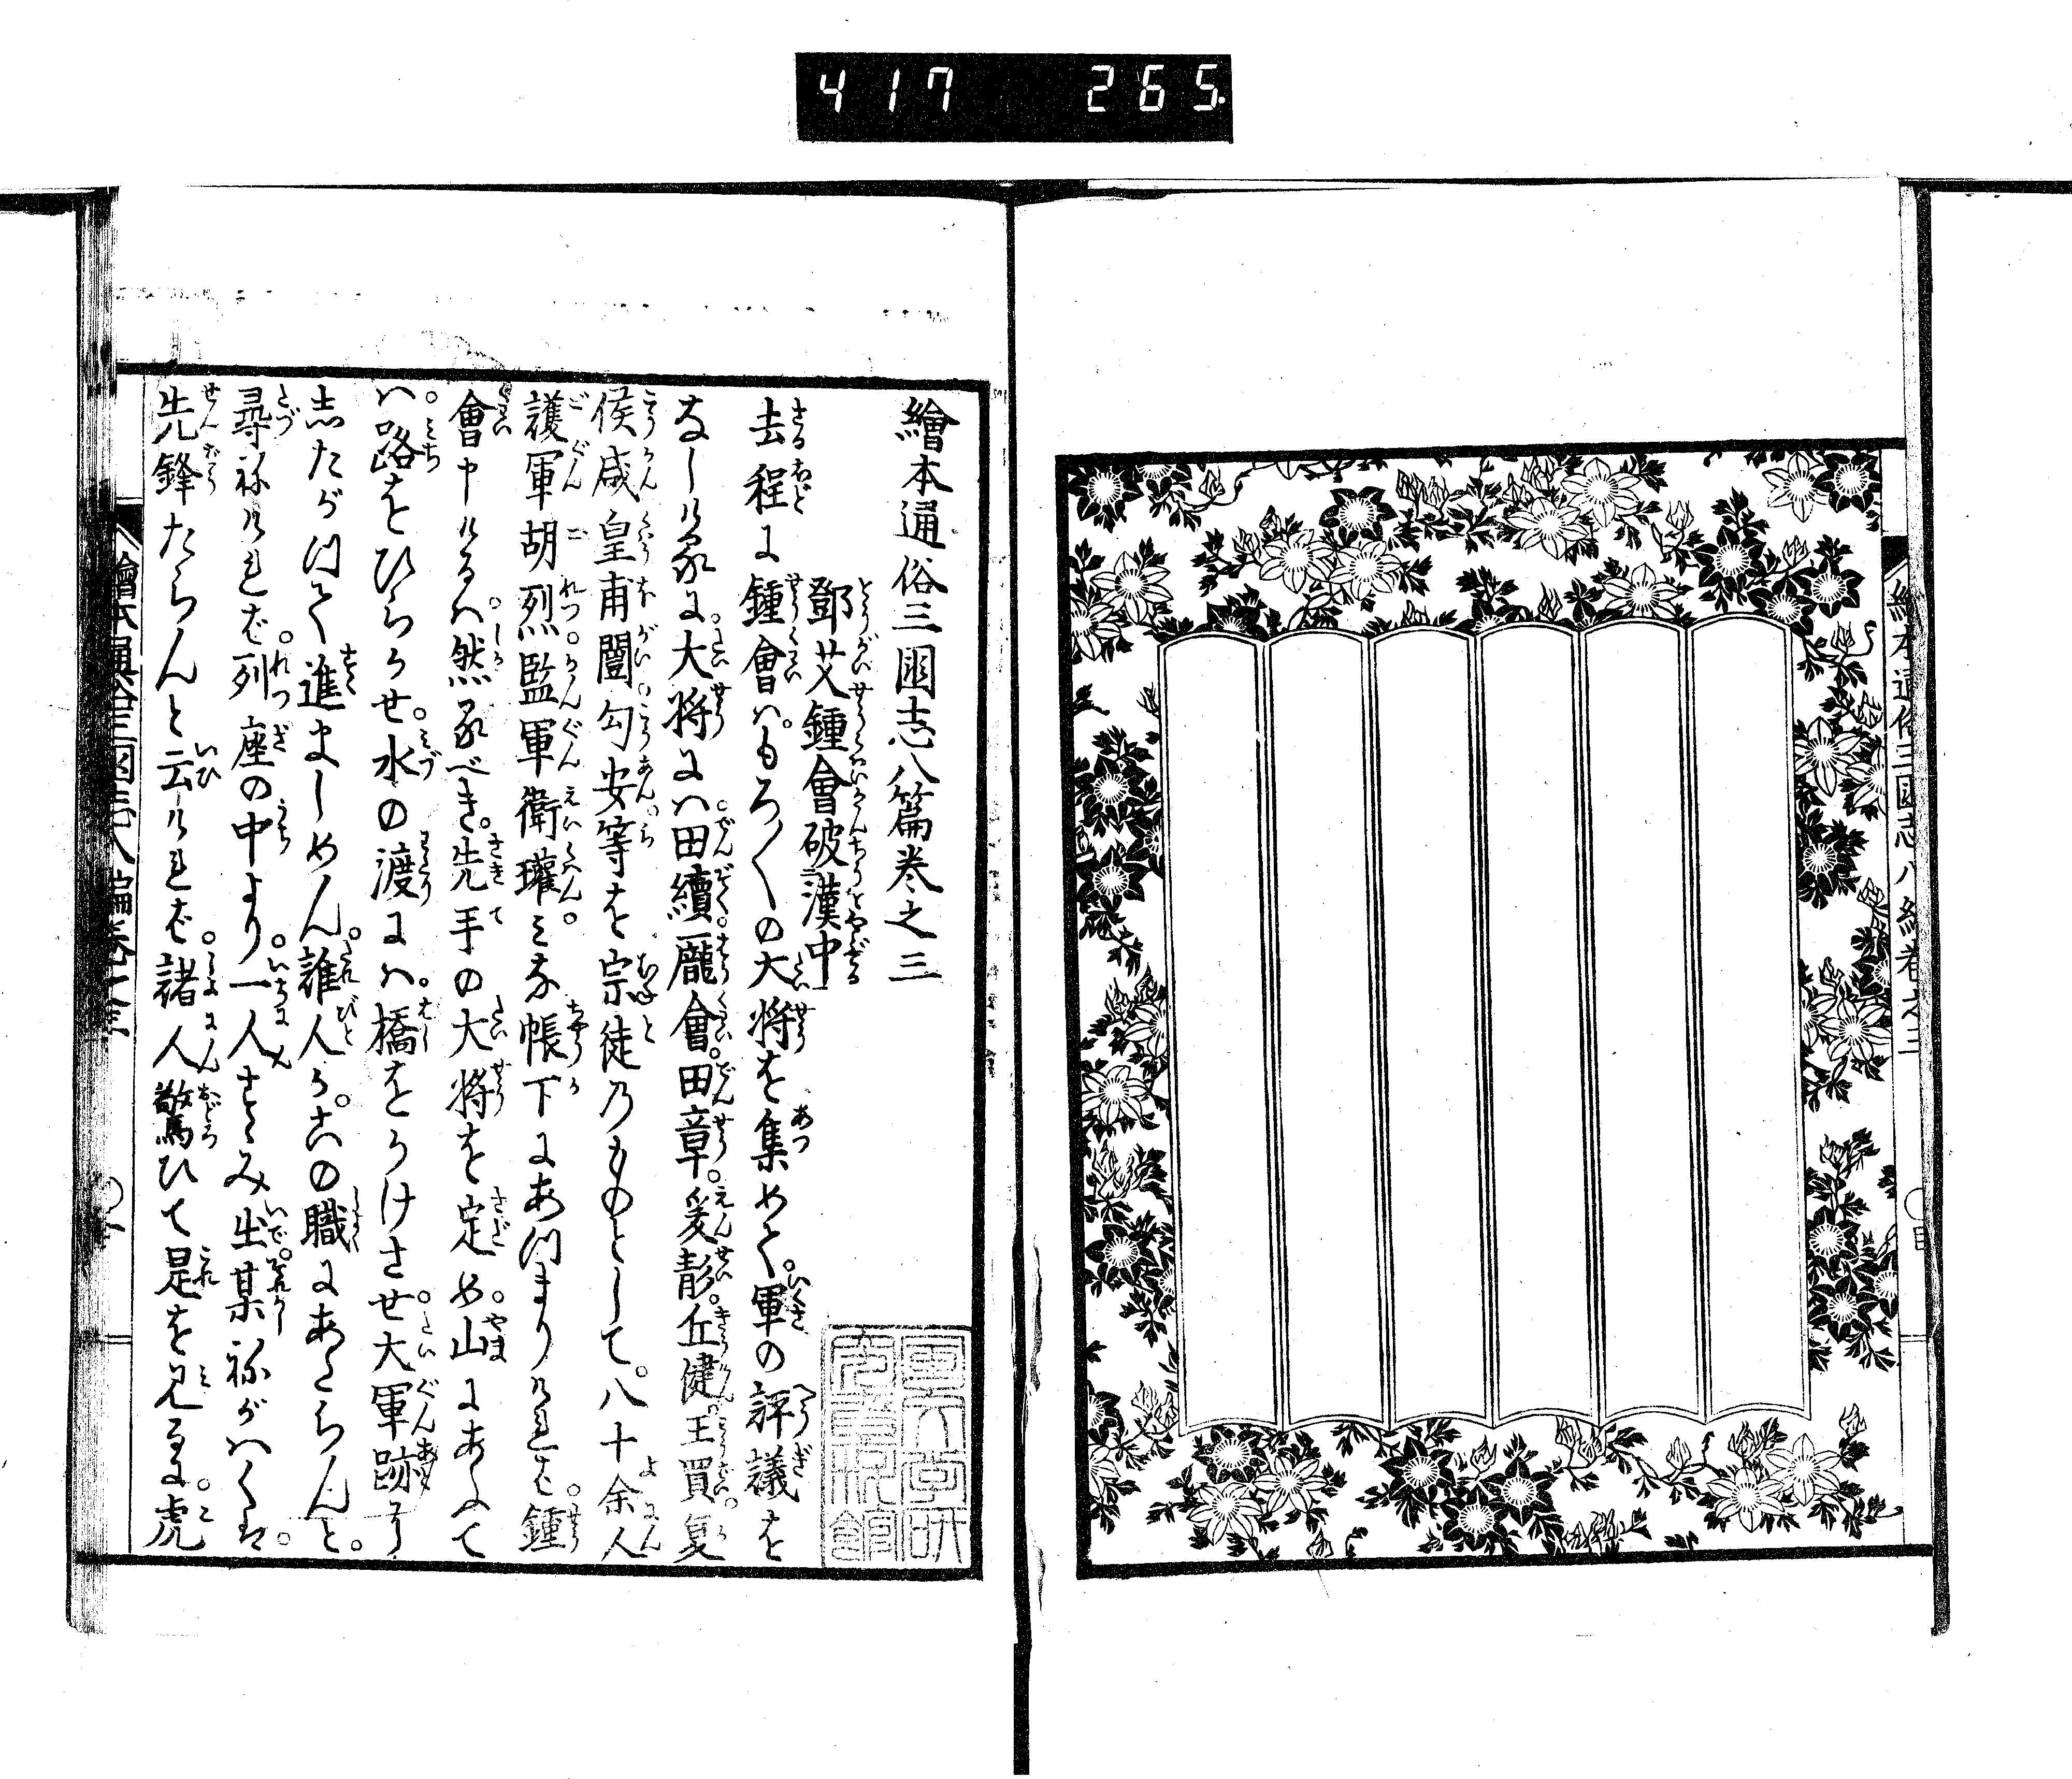 417 265
繪本通俗三國志八篇巻之三
鄧艾鍾會破漢中
去程に鍾會ハもろ〱の大将を集めて。軍の評議を
なしけるに。大将にハ。田續。龐會。田章。爰彭。丘健。王買。夏
侯咸。皇甫闓。勾安。等を宗徒のものとして。八十余人
護軍胡烈。監軍衛瓘。ミな帳下にあつまりければ。鍾
會申けるハ。然るべき。先手の大将を定め。山にあふて
ハ。路をひらかせ。水の渡にハ。橋をかけさせ。大軍跡に
したがつて進ましめん。誰人か。この職にあたらんと。
尋ねければ。列座の中より。一人すゝみ出。某ねがハくは。
先鋒たらんと云ければ。諸人驚ひて是を見るに。虎